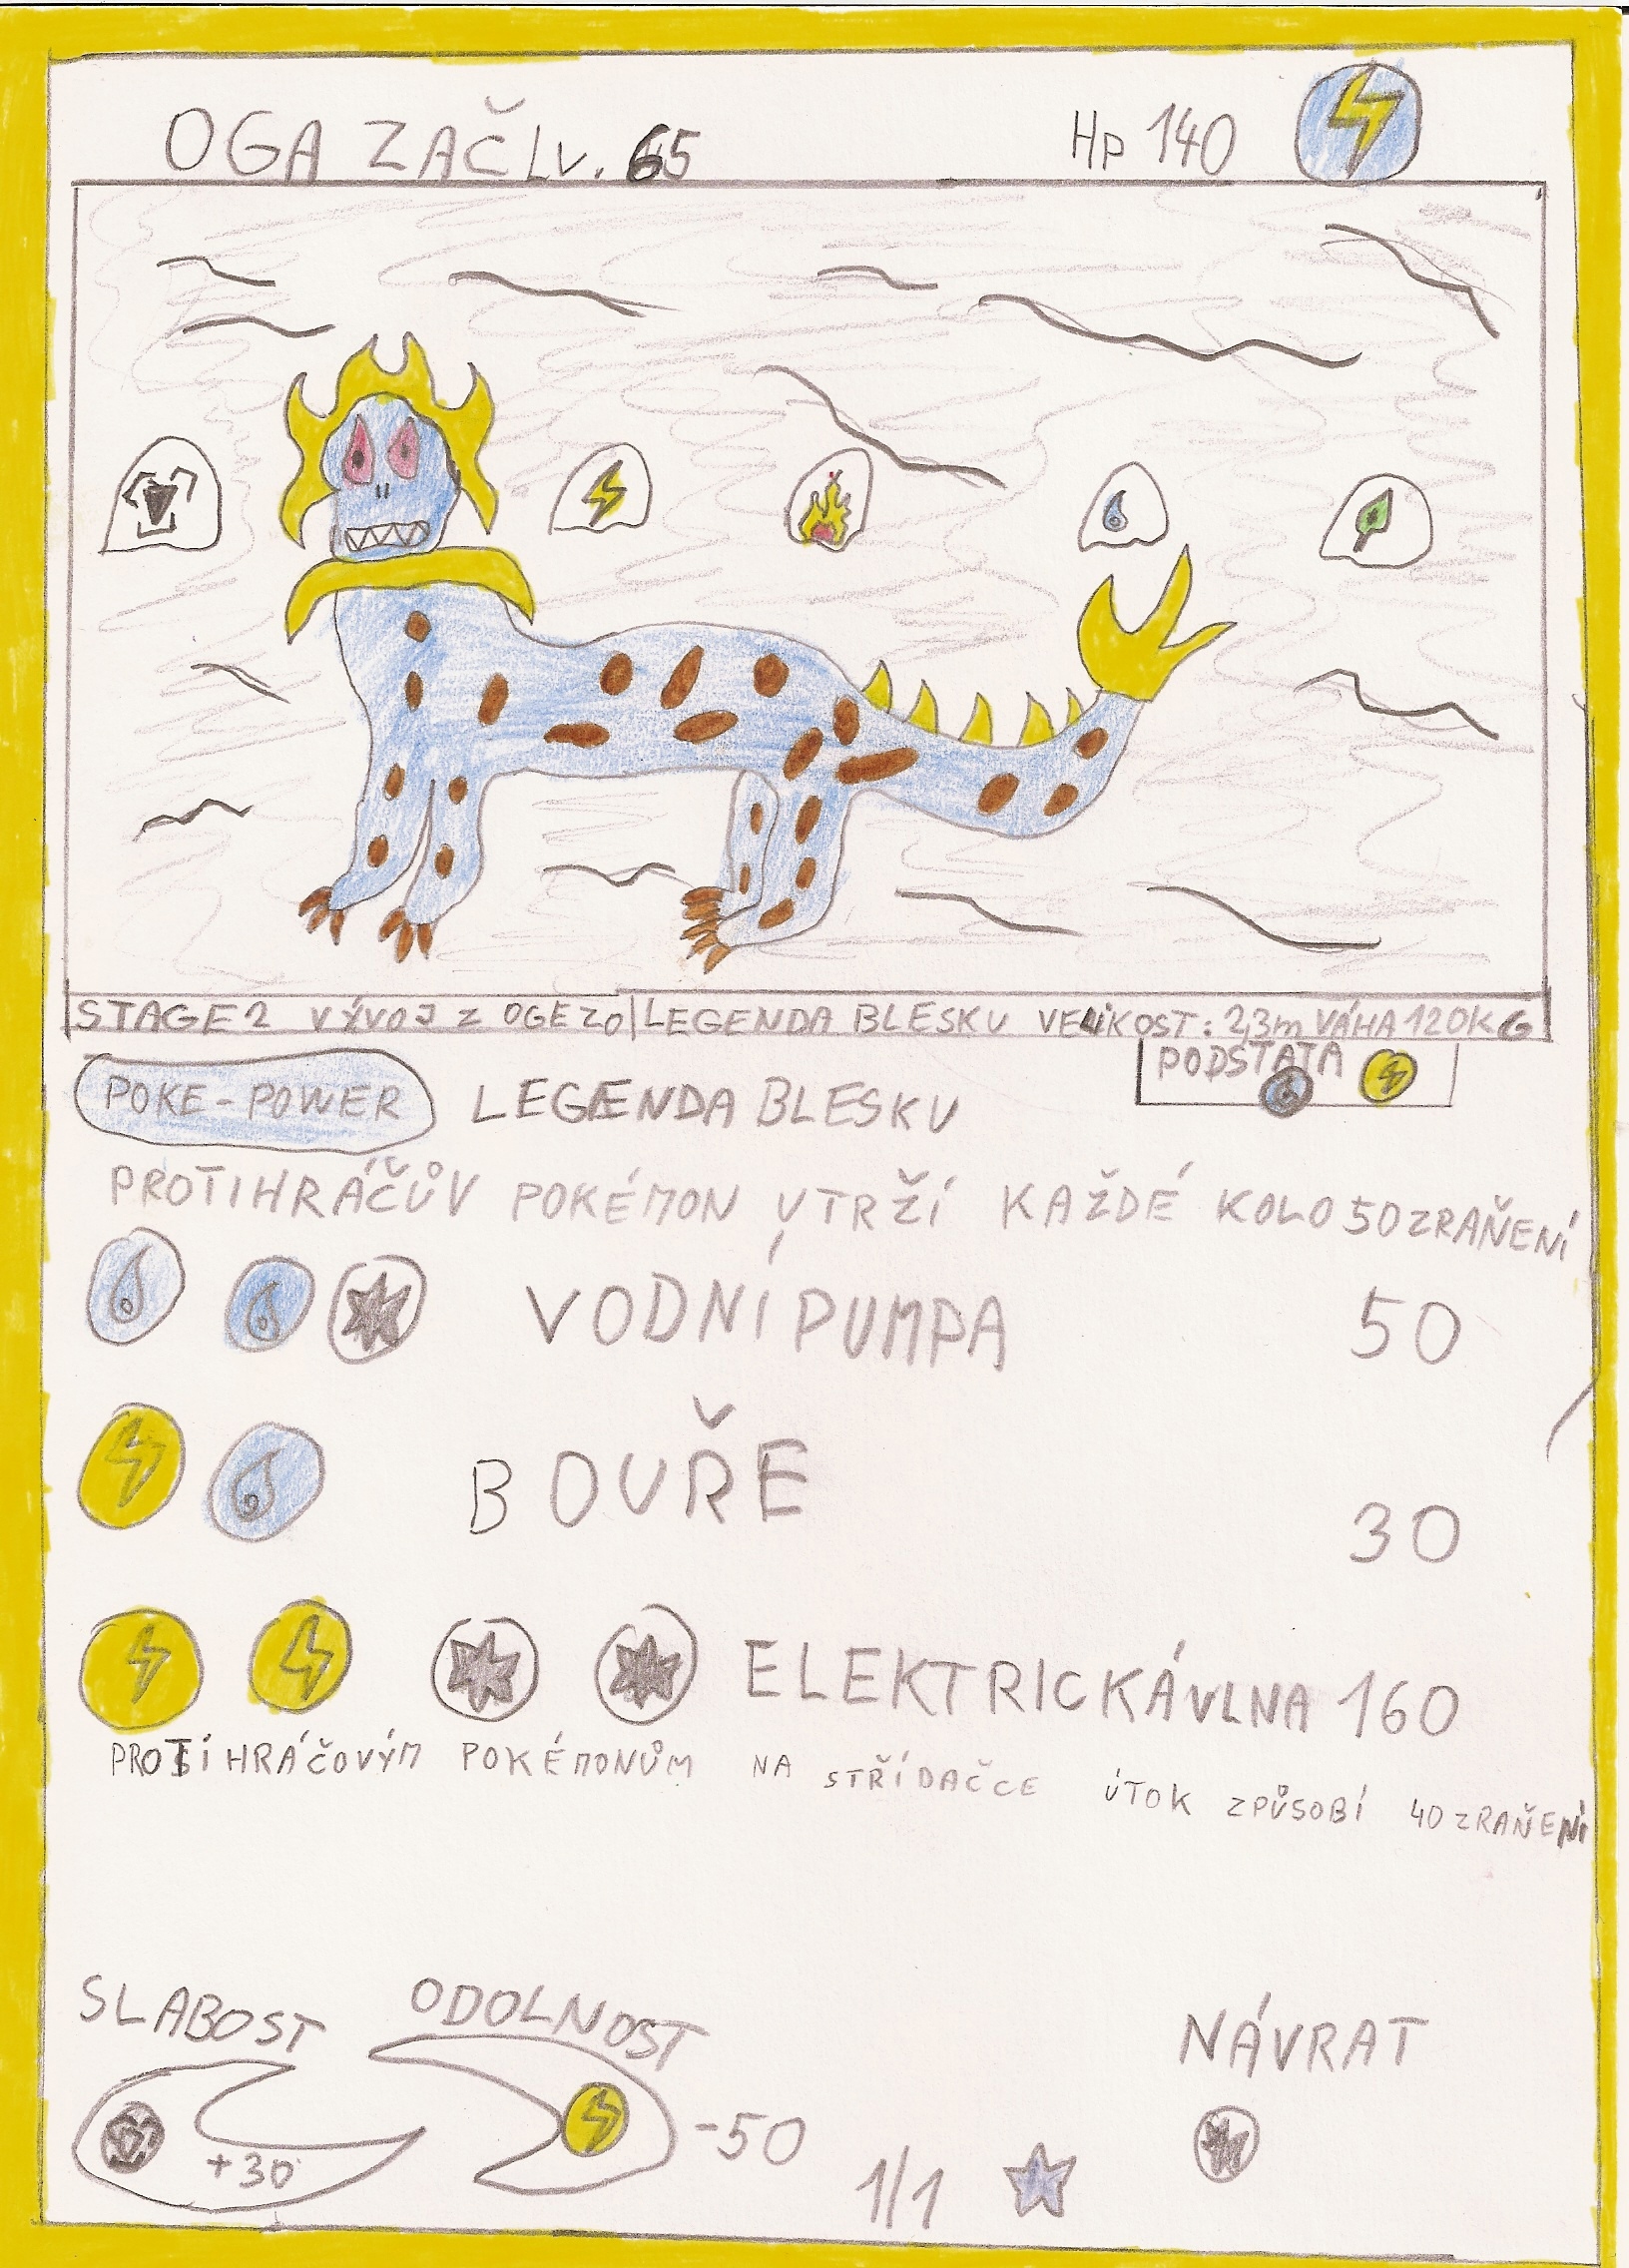 OGA ZAČ LV. 65 Hp 140
STAGE 2 VÝVOJ Z OGEZO LEGENDA BLESKU VELIKOST: 2,3m VÁHA 120KG
PODSTATA
POKE-POWER LEGENDA BLESKU
PROTIHRÁČŮV POKÉMON UTRŽÍ KAŽDÉ KOLO 50 ZRAŇENÍ
VODNÍ PUMPA 50
BOUŘE 30
ELEKTRICKÁ VLNA 160
PROTIHRÁČOVÝM POKÉMONŮM NA STŘÍDAČCE ÚTOK ZPŮSOBÍ 40 ZRAŇENÍ
SLABOST ODOLNOST NÁVRAT
+30 -50 1/1